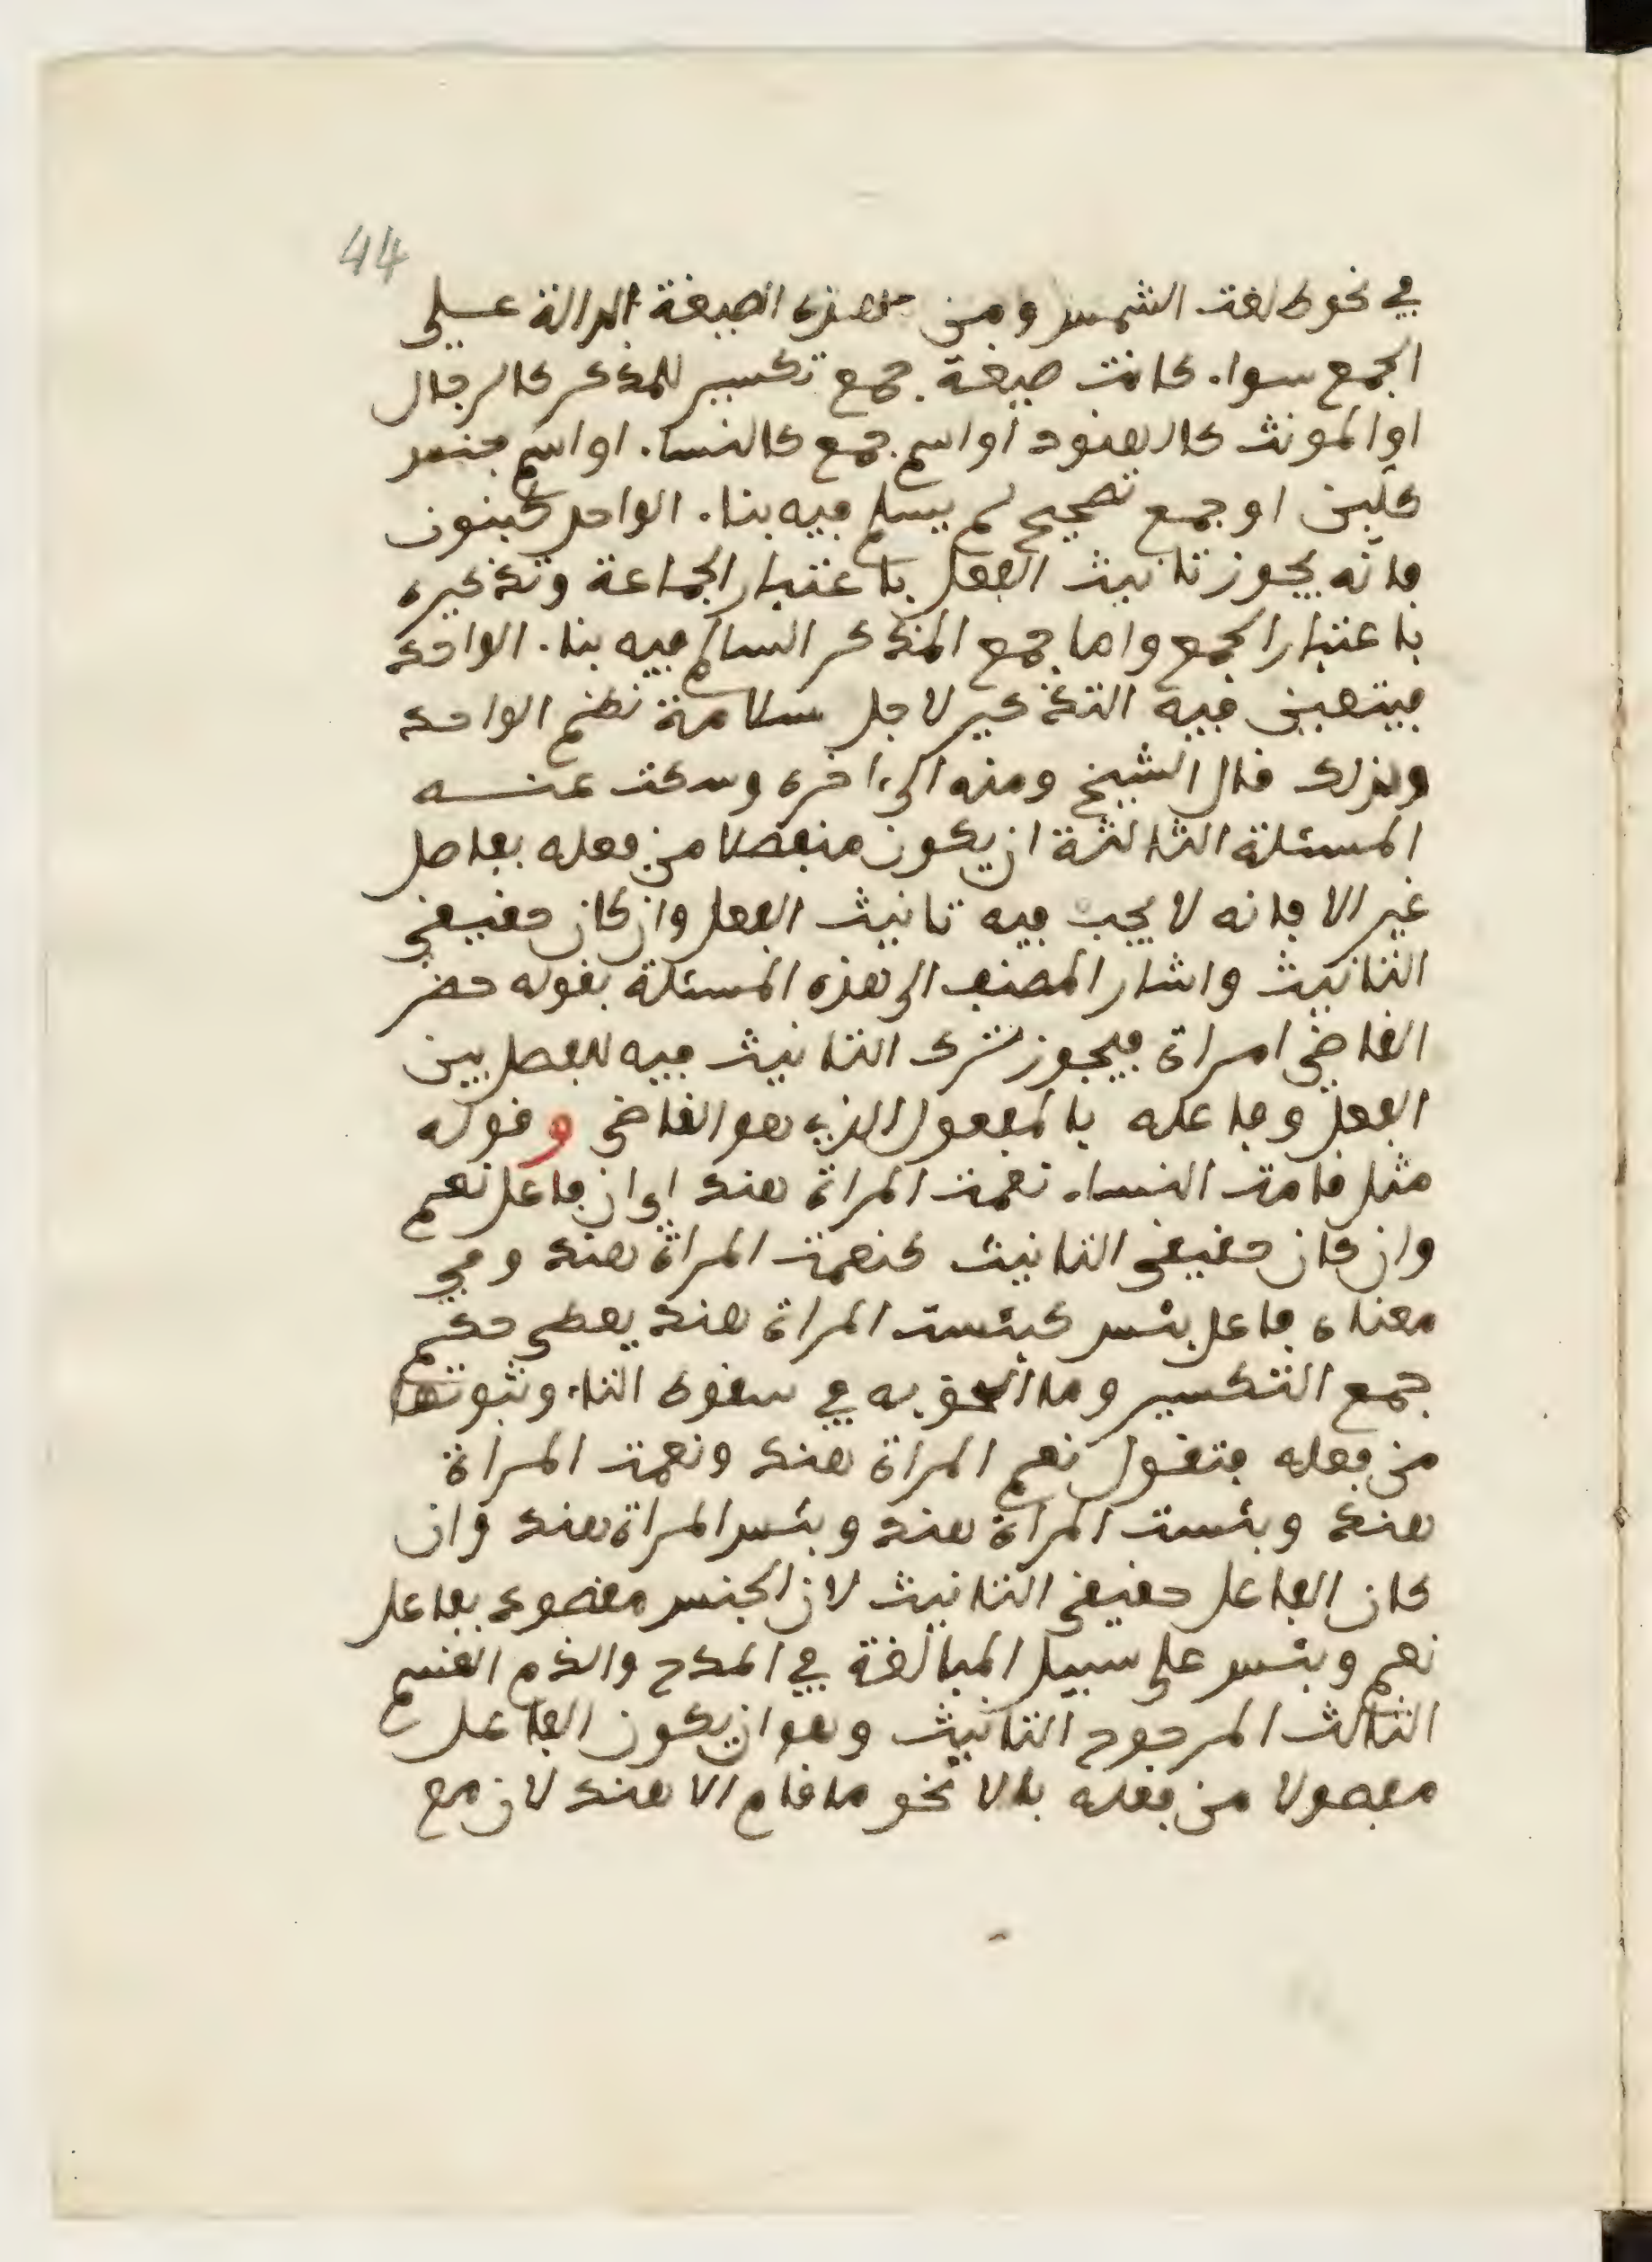 44
في نحو طلعت الشمس ومن هذه الصيغة الدالة على
الجمع سواء كانت صيغة جمع تكسير للمذكر كالرجال
او المونث كالهنود او اسم جمع كالنساء او اسم جنس
كلبن او جمع تصحيح لم يسلم فيه بناء الواحد كبنون
فانه يجوز تانيث الفعل باعتبار الجماعة وتذكيره
باعتبار الجمع واما جمع المذكر السالم فيه بناء الواحد
فيتعين فيه التذكير لاجل سلامة نظم الواحد
ولذلك قال الشيخ ومنه الى اخره وسكت عنه
المسئلة الثالثة ان يكون منفصلا من فعله بفاصل
غير الا فانه لا يجب فيه تانيث الفعل وان كان حقيقي
التانيث واشار المصنف الى هذه المسئلة بقوله حضر
القاضي امراة فيجوز ترك التانيث فيه للفصل بين
الفعل وفاعله بالمفعول الذي هو القاضي وقوله
مثل قامت النساء نعمت المراة هند اي ان فاعل نعم
وان كان حقيقي التانيث كنعمت المراة هند وفي
معناه فاعل بئس كبئست المراة هند يعطى حكم
جمع التكسير وما الحق به في سقوط التاء وثبوتها
من فعله فتقول نعم المراة هند ونعمت المراة
هند وبئست المراة هند وبئس المراة هند وان
كان الفاعل حقيقي التانيث لان الجنس مقصود بفاعل
نعم وبئس على سبيل المبالغة في المدح والذم القسم
الثالث المرجوح التانيث وهو ان يكون الفاعل
مفصولا من فعله بالا نحو ما قام الا هند لان مع